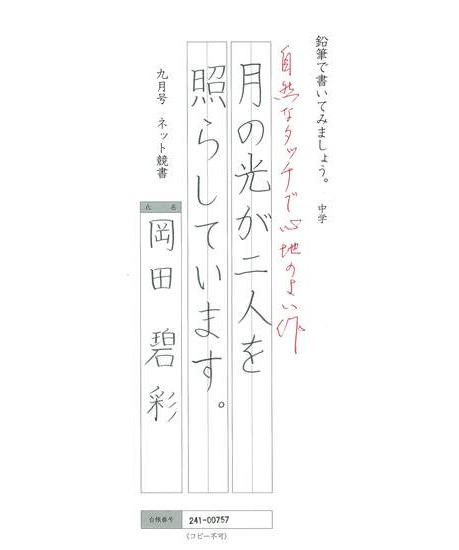 鉛筆で書いてみましょう。 中学
自然なタッチで心地のよい作
月の光が二人を
照らしています。
九月号 ネット競書
氏 名
岡田 碧彩
台帳番号 241-00757
(コピー不可)